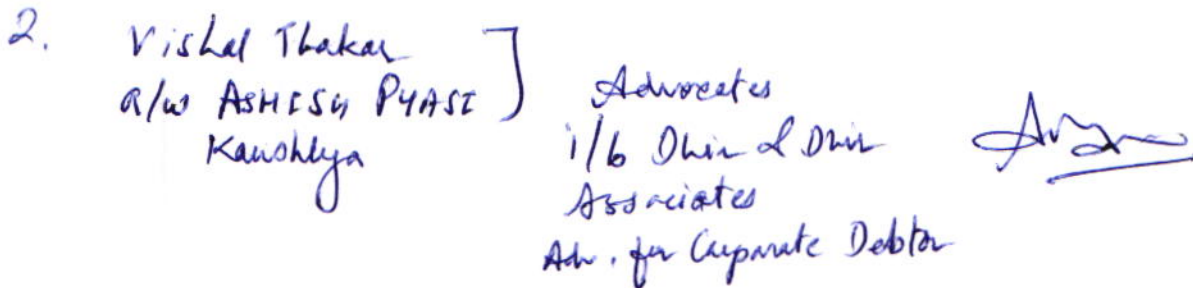 2. Vishal Thakar
a/w ASHISH PYASI
Kaushlya
Advocates
i/b Dhir & Dhir
Associates
Adv. for Corporate Debtor